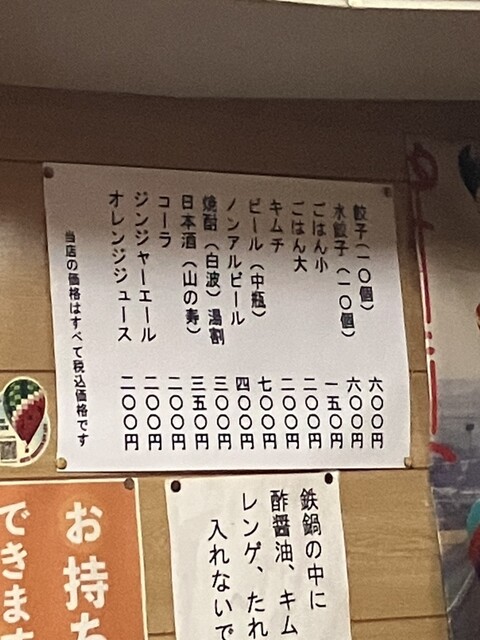 餃子(一〇個) 六〇〇円
水餃子(一〇個) 六〇〇円
ごはん小 一五〇円
ごはん大 二〇〇円
キムチ 二〇〇円
ビール(中瓶) 七〇〇円
ノンアルビール 四〇〇円
焼酎(白波)湯割 三〇〇円
日本酒(山の寿) 三五〇円
コーラ 二〇〇円
ジンジャーエール 二〇〇円
オレンジジュース 二〇〇円
当店の価格はすべて税込価格です
鉄鍋の中に
酢醤油、キム
レンゲ、たれ
入れないで
お持ち
できます